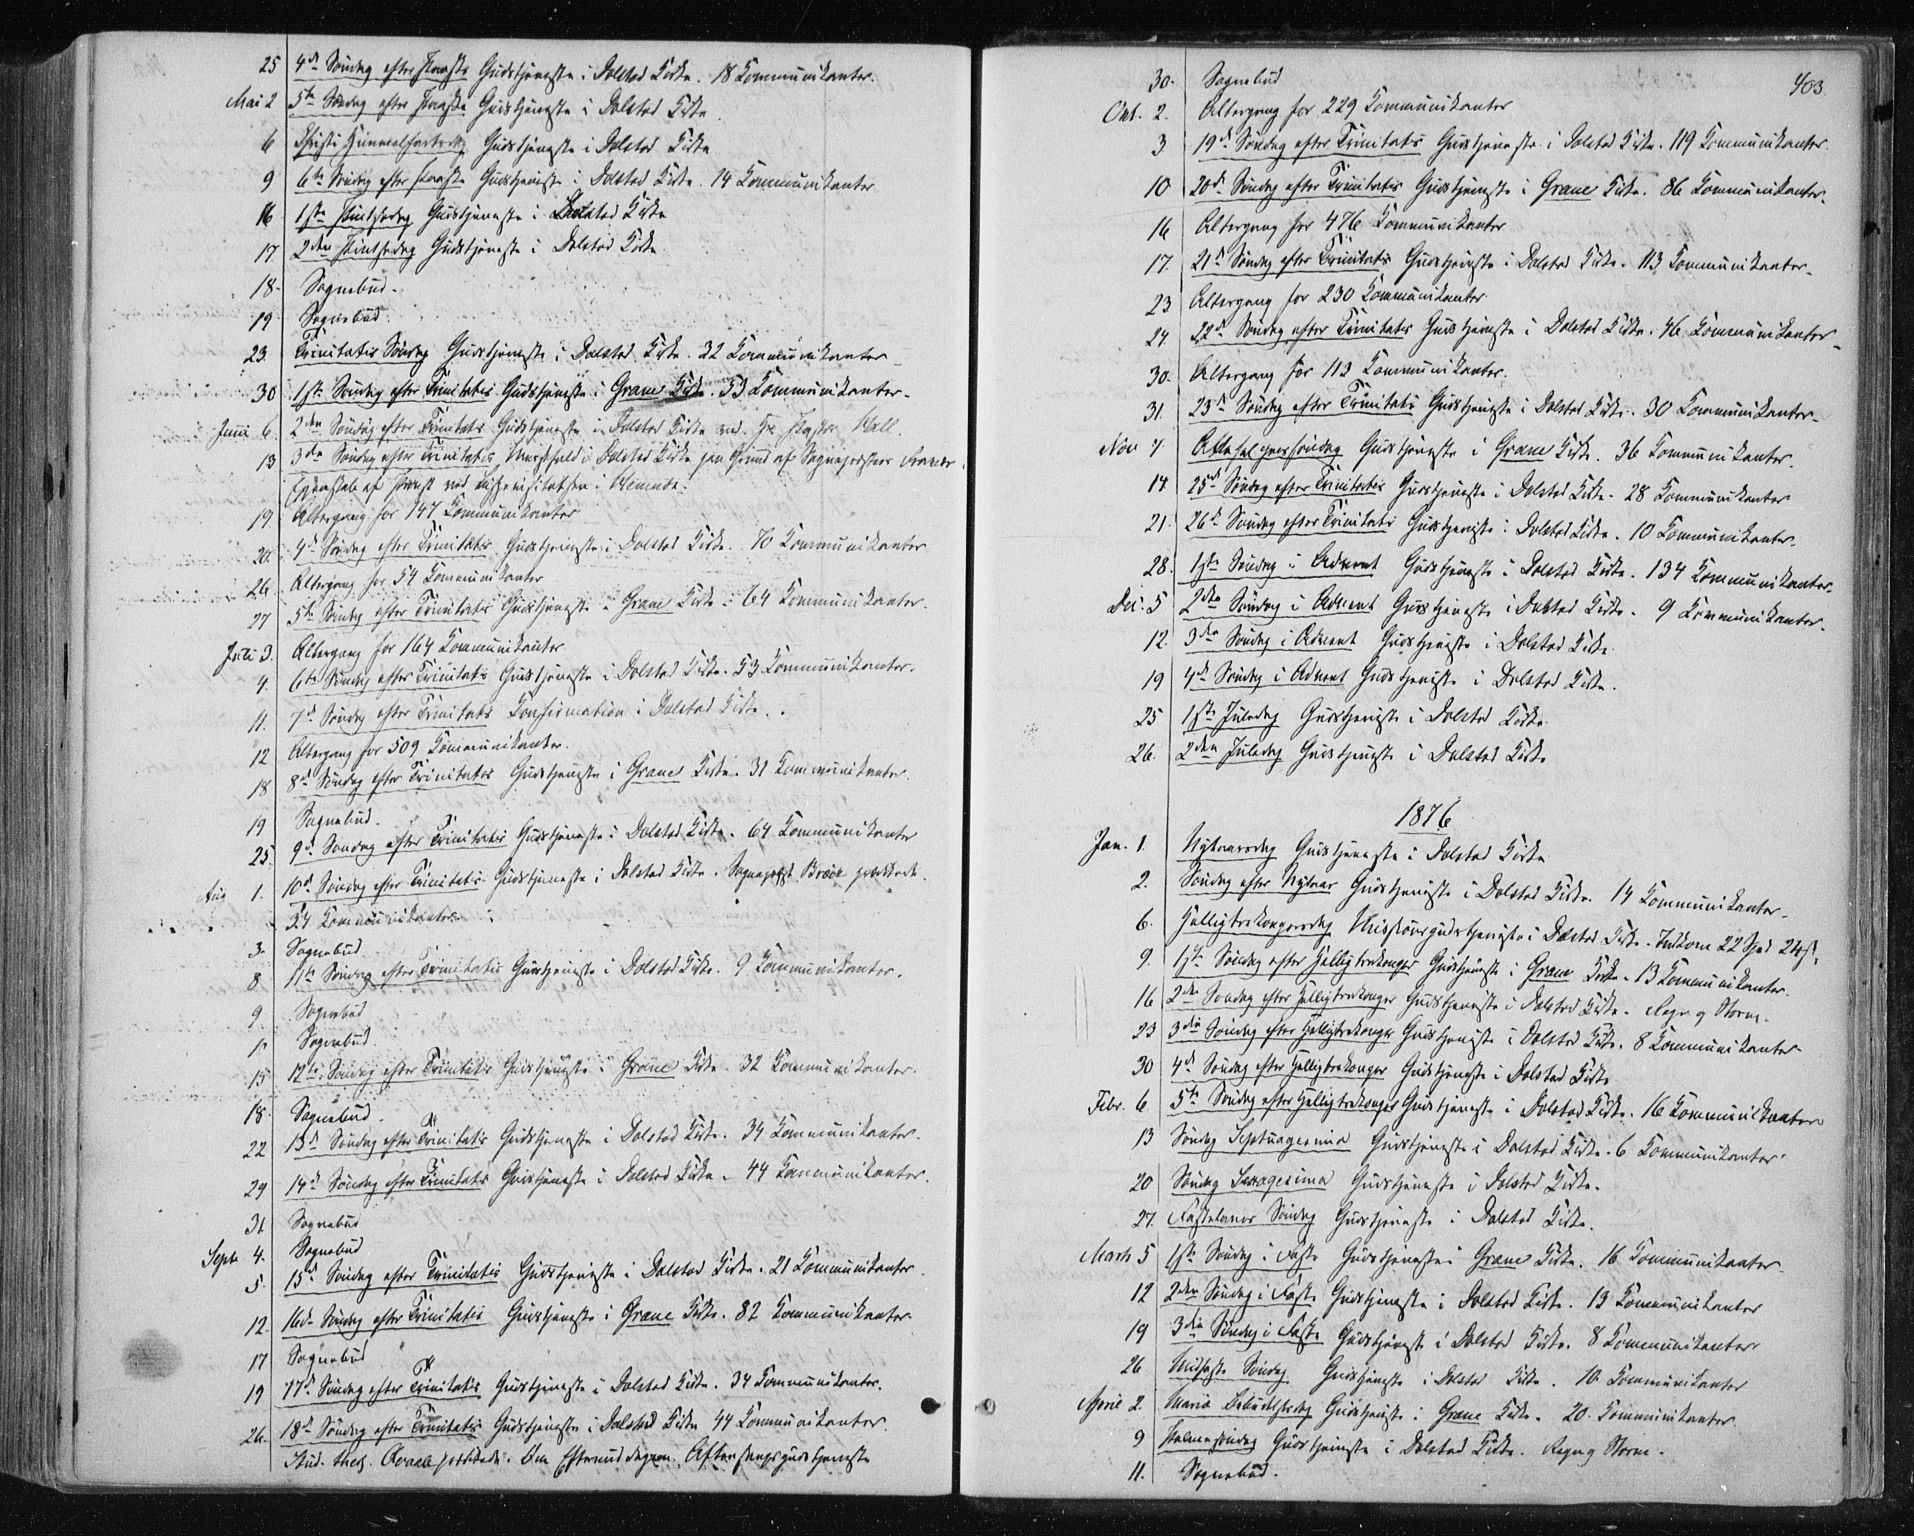 25 4de Søndag efter Paaske Gudstjeneste i Dolstad Kirke. 18 Kommunikanter.
Mai 2 5te Søndag efter Paaske Gudstjeneste i Dolstad Kirke
6 Christi Himmelfartsdag Gudstjeneste i Dolstad Kirke
9 6te Søndag efter Paaske Gudstjeneste i Dolstad Kirke. 14 Kommunikanter
16 1ste Pintsedag Gudstjeneste i Dolstad Kirke
17 2den Pintsedag Gudstjeneste i Dolstad Kirke.
18. Sognebud.
19 Sognebud.
23. Trinitatis Søndag Gudstjeneste i Dolstad Kirke. 32 Kommunikanter
30 1ste Søndag efter Trinitatis Gudstjeneste i Grane Kirke. 53 Kommunikanter.
Juni 6. 2den Søndag efter Trinitatis Gudstjeneste i Dolstad Kirke ved Hr. Pastor Wall.
13 3die Søndag efter Trinitatis Messefald i Dolstad Kirke paa Grund af Sognepræstens
ved Bispevisitatsen i Hemnæs.
19 Altergang for 147 Kommunikanter
20. 4de Søndag efter Trinitatis Gudstjeneste i Dolstad Kirke. 70 Kommunikanter
26. Altergang for 54 Kommunikanter
27 5te Søndag efter Trinitatis Gudstjeneste i Grane Kirke. 64 Kommunikanter.
Juli 3. Altergang for 164 Kommunikanter
4. 6te Søndag efter Trinitatis Gudstjeneste i Dolstad Kirke. 53 Kommunikanter.
11. 7de Søndag efter Trinitatis Konfirmation i Dolstad Kirke.
12 Altergang for 509 Kommunikanter.
18 8de Søndag efter Trinitatis Gudstjeneste i Grane Kirke. 31 Kommunikanter.
19 Sognebud.
25. 9de Søndag efter Trinitatis Gudstjeneste i Dolstad Kirke. 64 Kommunikanter
Aug 1. 10de Søndag efter Trinitatis Gudstjeneste i Dolstad Kirke. Sognepræst prædikede.
54 Kommunikanter
3. Sognebud
8 11te Søndag efter Trinitatis Gudstjeneste i Dolstad Kirke. 9 Kommunikanter.
9 Sognebud
Sognebud
15 12te Søndag efter Trinitatis Gudstjeneste i Grane Kirke. 32 Kommunikanter.
18. Sognebud.
22 13de Søndag efter Trinitatis Gudstjeneste i Dolstad Kirke. 34 Kommunikanter.
29 14de Søndag efter Trinitatis Gudstjeneste i Dolstad Kirke. 44 Kommunikanter.
31 Sognebud
Septr 4. Sognebud
5. 15de Søndag efter Trinitatis Gudstjeneste i Dolstad Kirke. 21 Kommunikanter.
12. 16de Søndag efter Trinitatis Gudstjeneste i Grane Kirke. 82 Kommunikanter
17 Sognebud
19 17de Søndag efter Trinitatis Gudstjeneste i Dolstad Kirke. 34 Kommunikanter.
26. 18de Søndag efter Trinitatis Gudstjeneste i Dolstad Kirke 44 Kommunikanter.
Stud. theol. prædikede. Om Eftermiddagen Aftensangsgudstjeneste
403
30. Sognebud
Okt. 2. Altergang for 229 Kommunikanter
3 19de Søndag efter Trinitatis Gudstjeneste i Dolstad Kirke. 119 Kommunikanter.
10 20de Søndag efter Trinitatis Gudstjeneste i Grane Kirke. 86 Kommunikanter.
16 Altergang for 476 Kommunikanter
17. 21de Søndag efter Trinitatis Gudstjeneste i Dolstad Kirke. 113 Kommunikanter.
23 Altergang for 230 Kommunikanter
24 22de Søndag efter Trinitatis Gudstjeneste i Dolstad Kirke. 46 Kommunikanter.
30. Altergang for 113 Kommunikanter.
31. 23de Søndag efter Trinitatis Gudstjeneste i Dolstad Kirke. 30 Kommunikanter.
Nov 7 Allehelgenssøndag Gudstjeneste i Grane Kirke. 36 Kommunikanter.
14 25de Søndag efter Trinitatis Gudstjeneste i Dolstad Kirke. 28 Kommunikanter
21. 26de Søndag efter Trinitatis Gudstjeneste i Dolstad Kirke. 10 Kommunikanter.
28. 1ste Søndag i Advent Gudstjeneste i Dolstad Kirke. 134 Kommunikanter.
Dec. 5 2den Søndag i Advent Gudstjeneste i Dolstad Kirke. 9 Kommunikanter.
12. 3die Søndag i Advent Gudstjeneste i Dolstad Kirke.
19 4de Søndag i Advent Gudstjeneste i Dolstad Kirke.
25 1ste Juledag Gudstjeneste i Dolstad Kirke.
26. 2den Juledag Gudstjeneste i Dolstad Kirke
1876
Jan. 1. Nytaarsdag Gudstjeneste i Dolstad Kirke
2. Søndag efter Nytaar Gudstjeneste i Dolstad Kirke. 14 Kommunikanter.
6. Helligtrekongersdag Missionsgudstjeneste i Dolstad Kirke. Indkom 22 Spd 24 ß.
9. 1ste Søndag efter Helligtrekonger Gudstjeneste i Grane Kirke. 13 Kommunikanter.
16 2den Søndag efter Helligtrekonger Gudstjeneste i Dolstad Kirke. Regn og Storm.
23 3die Søndag efter Helligtrekonger Gudstjeneste i Dolstad Kirke. 8 Kommunikanter.
30 4de Søndag efter Helligtrekonger Gudstjeneste i Dolstad Kirke
Febr. 6 5te Søndag efter Helligtrekonger Gudstjeneste i Dolstad Kirke. 16 Kommunikanter
13 Søndag Septuagesima Gudstjeneste i Dolstad Kirke. 6 Kommunikanter.
20 Søndag Sexagesima Gudstjeneste i Dolstad Kirke.
27. Fastelavns Søndag Gudstjeneste i Dolstad Kirke.
Marts 5 1ste Søndag i Faste Gudstjeneste i Grane Kirke. 16 Kommunikanter
12 2den Søndag i Faste Gudstjeneste i Dolstad Kirke. 13 Kommunikanter
19 3die Søndag i Faste Gudstjeneste i Dolstad Kirke. 8 Kommunikanter
26 Midfaste Søndag Gudstjeneste i Dolstad Kirke. 10 Kommunikanter
April 2. Mariæ Bebudelsesdag Gudstjeneste i Grane Kirke. 20. Kommunikanter.
9 Palmesøndag Gudstjeneste i Dolstad Kirke. Regn og Storm.
11. Sognebud.